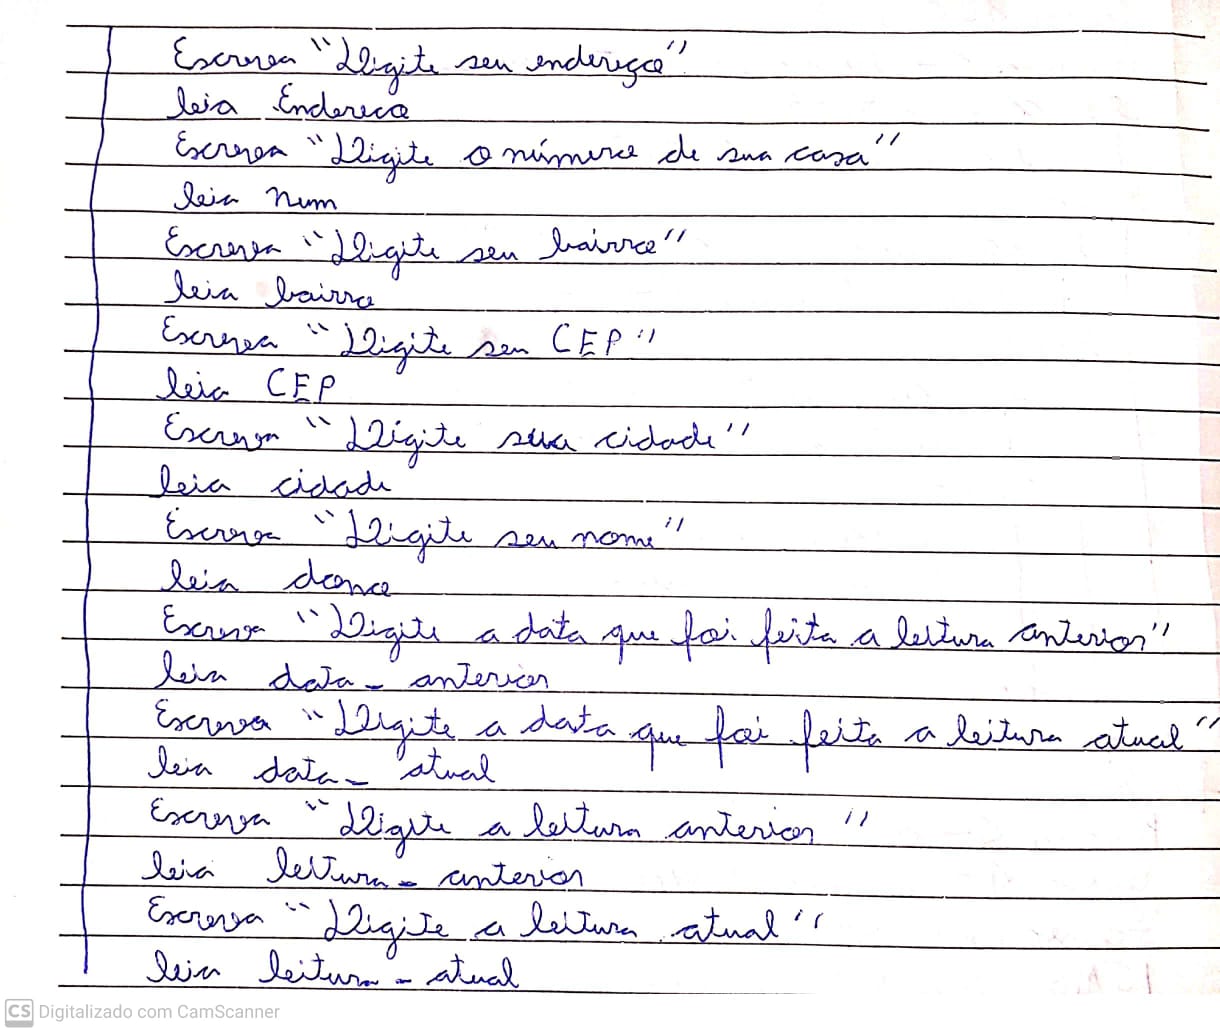 Escreva "Digite seu endereço"
leia Endereco
Escreva "Digite o número de sua casa"
leia num
Escreva "Digite seu bairro"
leia bairro
Escreva "Digite seu CEP"
leia CEP
Escreva "Digite sua cidade"
leia cidade
Escreva "Digite seu nome"
leia
Escreva "Digite a data que foi feita a leitura anterior"
leia data_anterior
Escreva "Digite a data que foi feita a leitura atual"
leia data_atual
Escreva "Digite a leitura anterior"
leia leitura_anterior
Escreva "Digite a leitura atual"
leia leitura_atual
CS Digitalizado com CamScanner